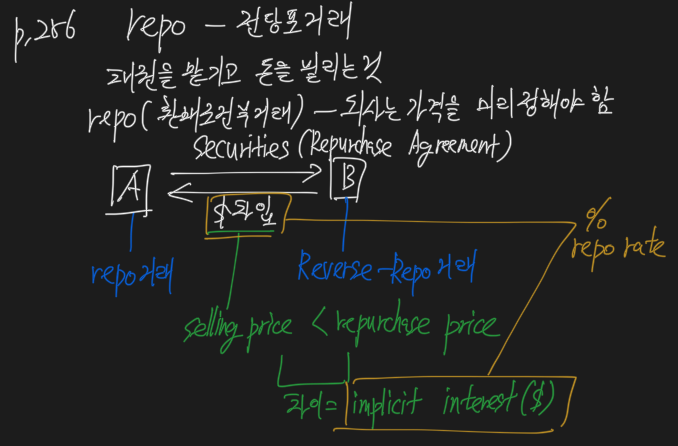 p.286 repo - 전당포거래
채권을 맡기고 돈을 빌리는것
repo(환매조건부거래) - 되사는 가격을 미리정해야 함
Securities (Repurchase Agreement)
A B
$차입
% repo rate
repo거래 Reverse-Repo거래
selling price < repurchase price
차이= implicit interest($)